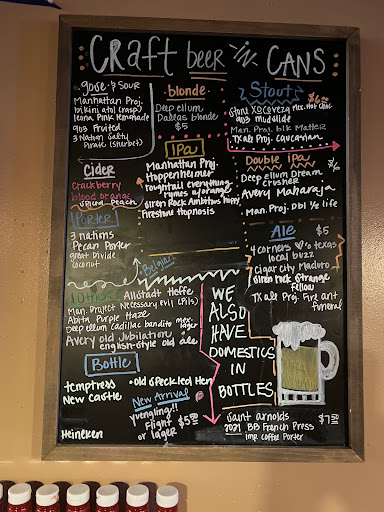 CRaft beer -in- CANS
gose & SOUR
Manhattan Proj.
bikini atol (rasp)
leona Pink Lemonade
903 Fruited
3 Nation Salty
Pirate (sherbet)
blonde
Deep ellum
Dallas blonde
$5
Stout $6
Stone Xocoveza Mex. Hot Choc.
903 mudslide
Man. Proj. blk Matter
TX ale Proj. Caucasian
Cider
Crackberry
blood orange
spiced peach
IPA
Manhattan Proj.
Hoppenheimer
roughtail everything
rymes w/orange
Siren Rock Ambitious hoppy
Firestone Hopnosis
Double ipa $6
Deep ellum Dream
crusher
Avery Maharaja
Man. Proj. Dbl ½ life
PORTER
3 nations
Pecan Porter
Great Divide
coconut
Ale $5
4 corners ♡'s texas
local buzz
Cigar city Maduro
Siren rock Strange
fellow
TX ale Proj. Fire ant
funeral
Belgian
Others
Allstadt Heffe
Man. Project Necessary Evil (Pils)
Abita Purple Haze
Deep ellum Cadillac bandito mex. lager
Avery old Jubilation
english-style old ale
WE
ALSO
HAVE
DOMESTICS
IN
BOTTLES
Bottle
temptress
New Castle
Heineken
• Old Speckled Hen
New Arrival
yuengling!!
Flight
or lager
$5
Saint arnolds $7
2021 BB French Press
IMP. Coffee Porter